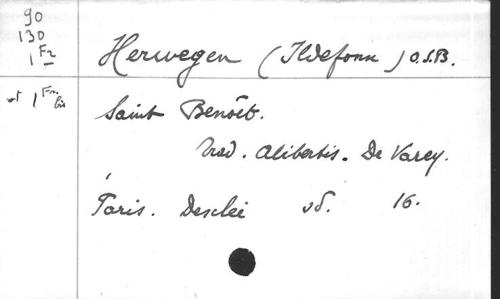 90
130
1 Fr
Herwegen (Ildefons) O.S.B.
et 1 Fr bis
Saint Benoît.
Trad. Alibertis. De Varey.
Paris. Desclée sd. 16.